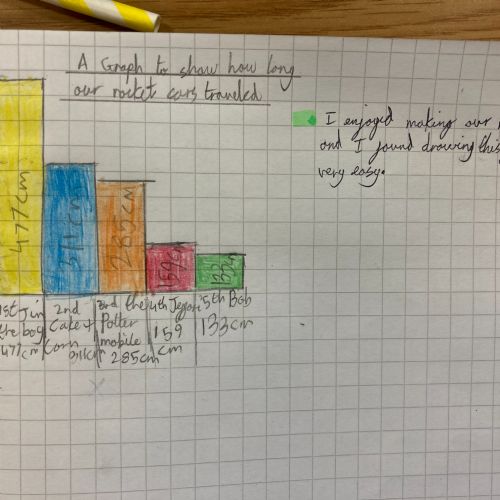 A Graph to show how long
our rocket cars traveled
I enjoyed making our
and I found drawing this
very easy.
477cm
311cm
285cm
159cm
133cm
1st Jim
the boy
477cm
2nd
Cake +
Corn
311cm
3rd the
Potter
mobile
285cm
4th
159
cm
5th Bob
133cm